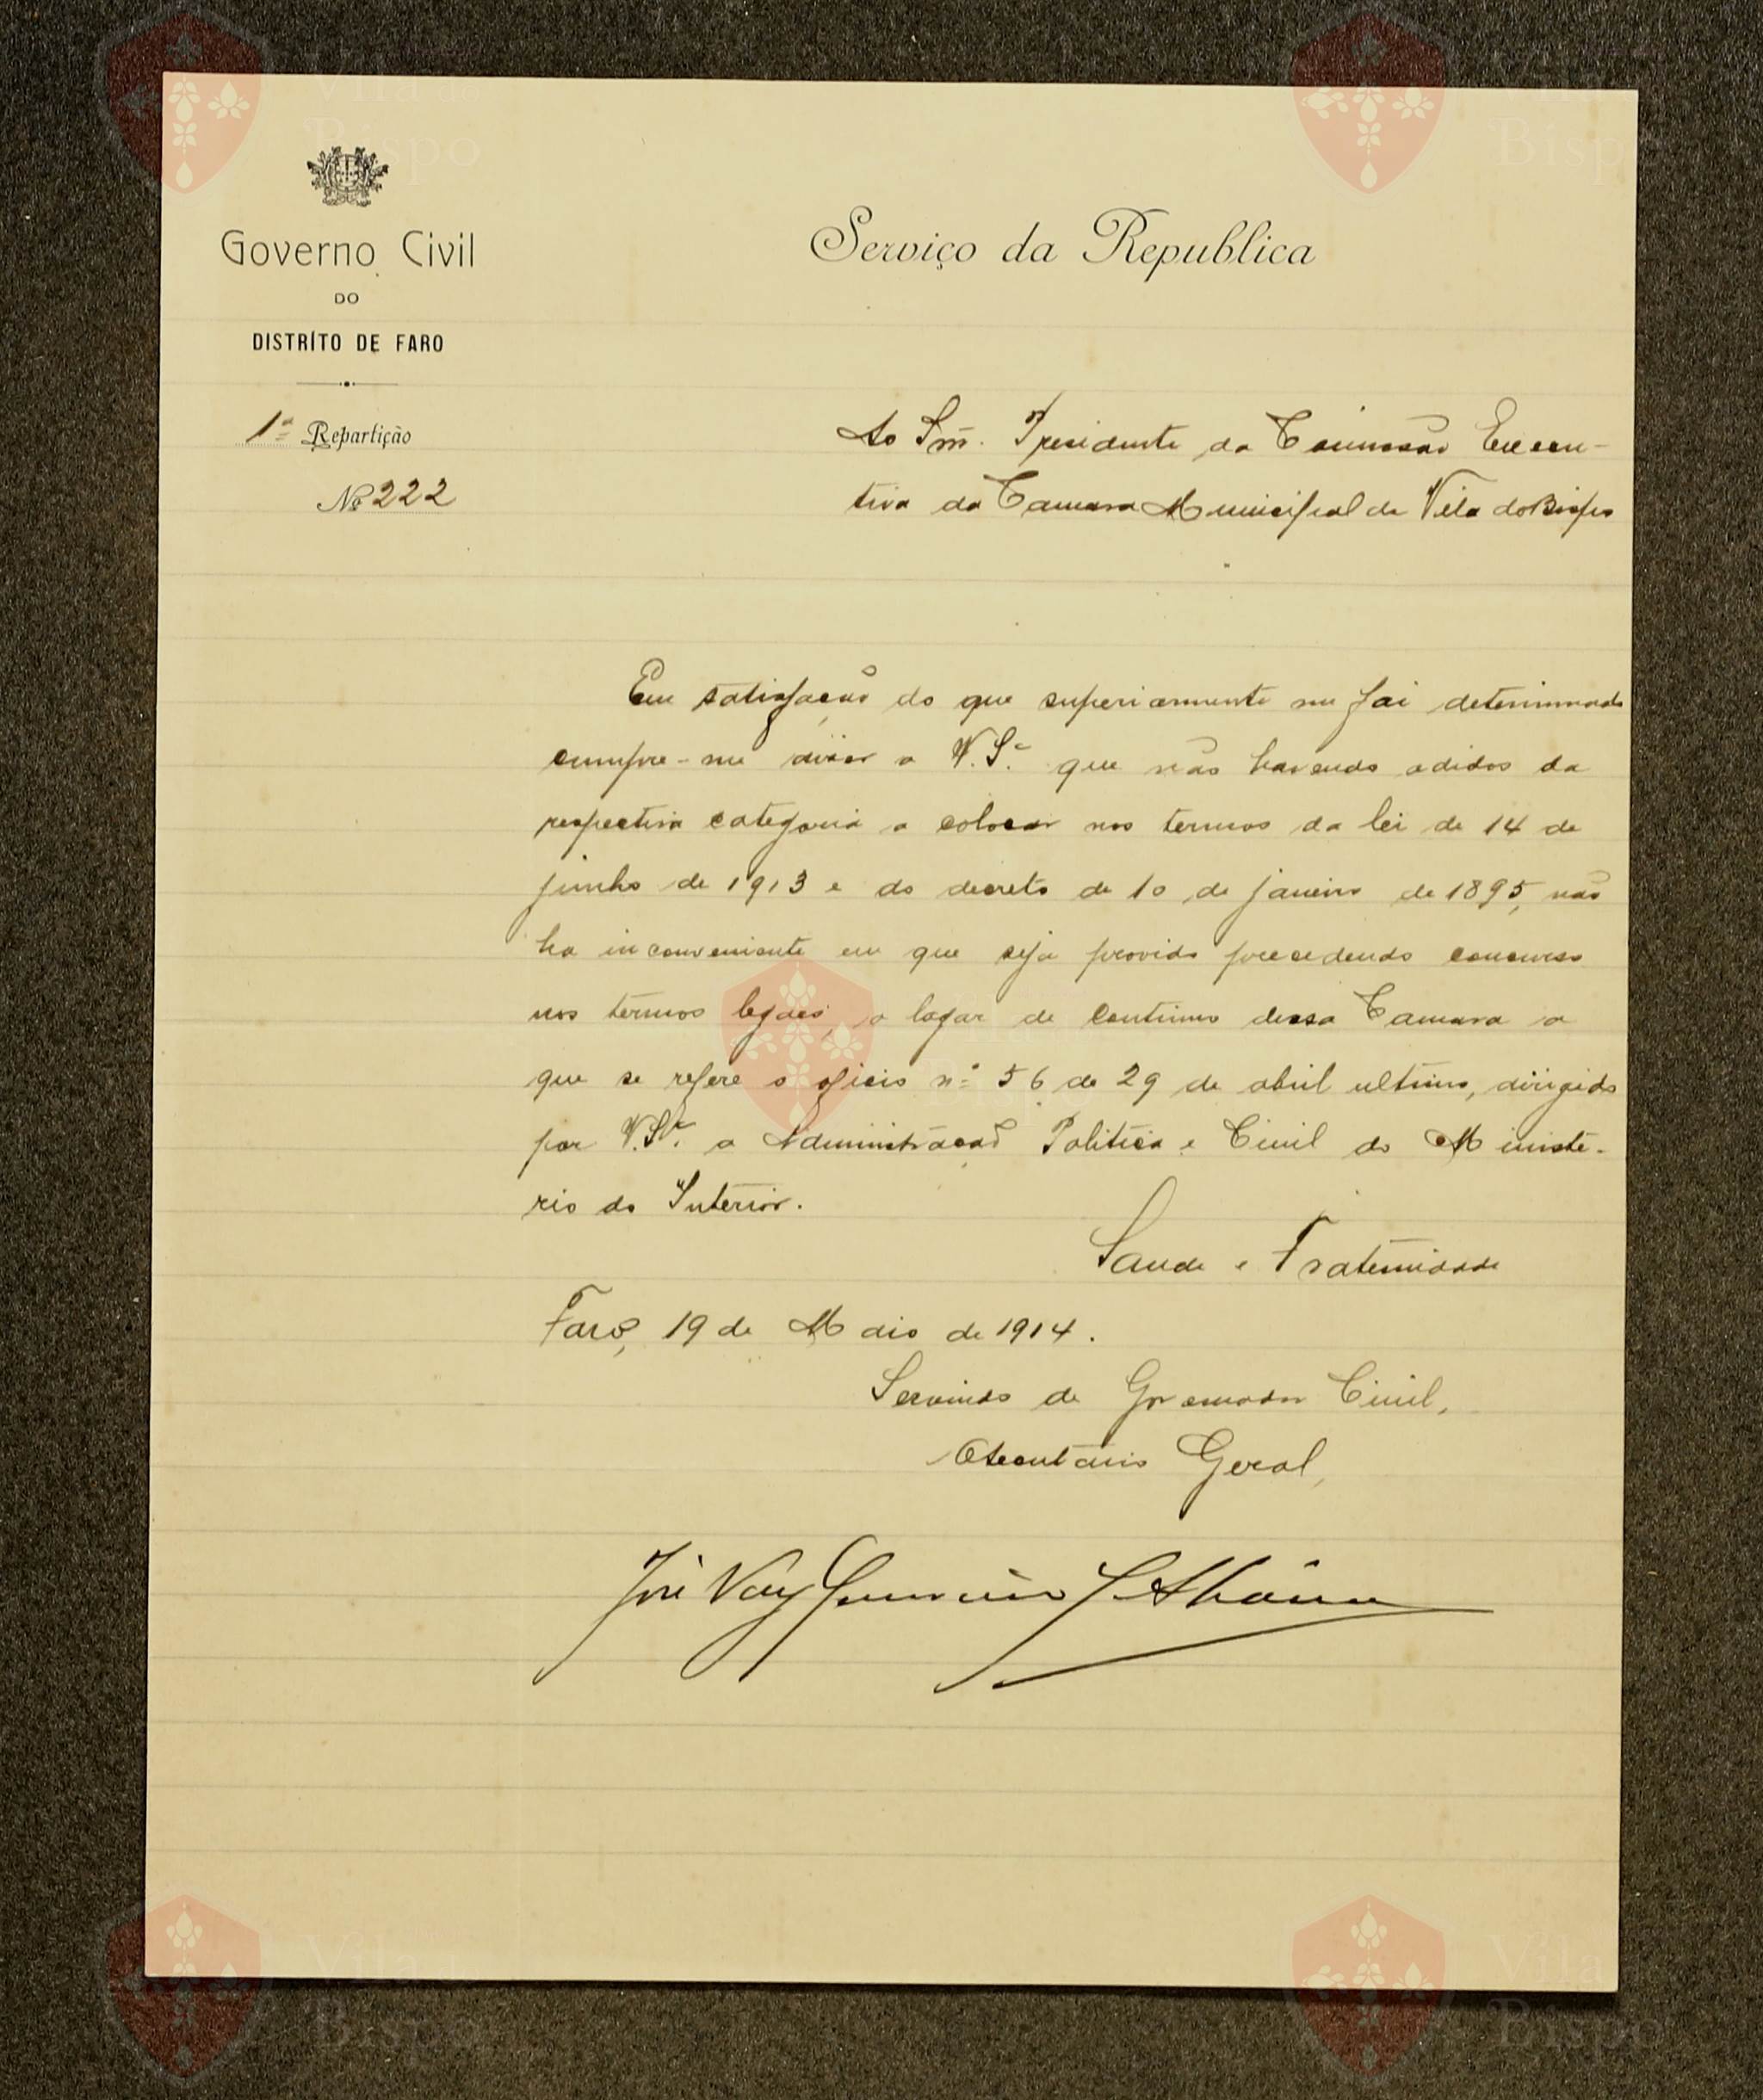 Governo Civil
DO
DISTRÍTO DE FARO
1ª Repartição
Nº 222
Serviço da Republica
Ao Snr. Presidente da Comissão Execu-
tiva da Camara Municipal de Vila do Bispo
Em satisfação do que superiormente me foi determinado
cumpre-me dizer a V. Sª. que não havendo adidos da
respectiva categoria a colocar nos termos da lei de 14 de
junho de 1913 e do decreto de 10 de janeiro de 1895, não
ha inconveniente em que seja provido precedendo concurso
nos termos legaes, o logar de continuo dessa Camara a
que se refere o oficio nº 56 de 29 de abril ultimo, dirigido
por V. Sª. a Administração Politica e Civil do Ministe-
rio do Interior.
Saude e Fraternidade
Faro, 19 de Maio de 1914.
Servindo de Governador Civil,
O Secretario Geral,
José Vaz
Vila do
Bispo
Bispo
Vila
Bispo
Vila
Bispo